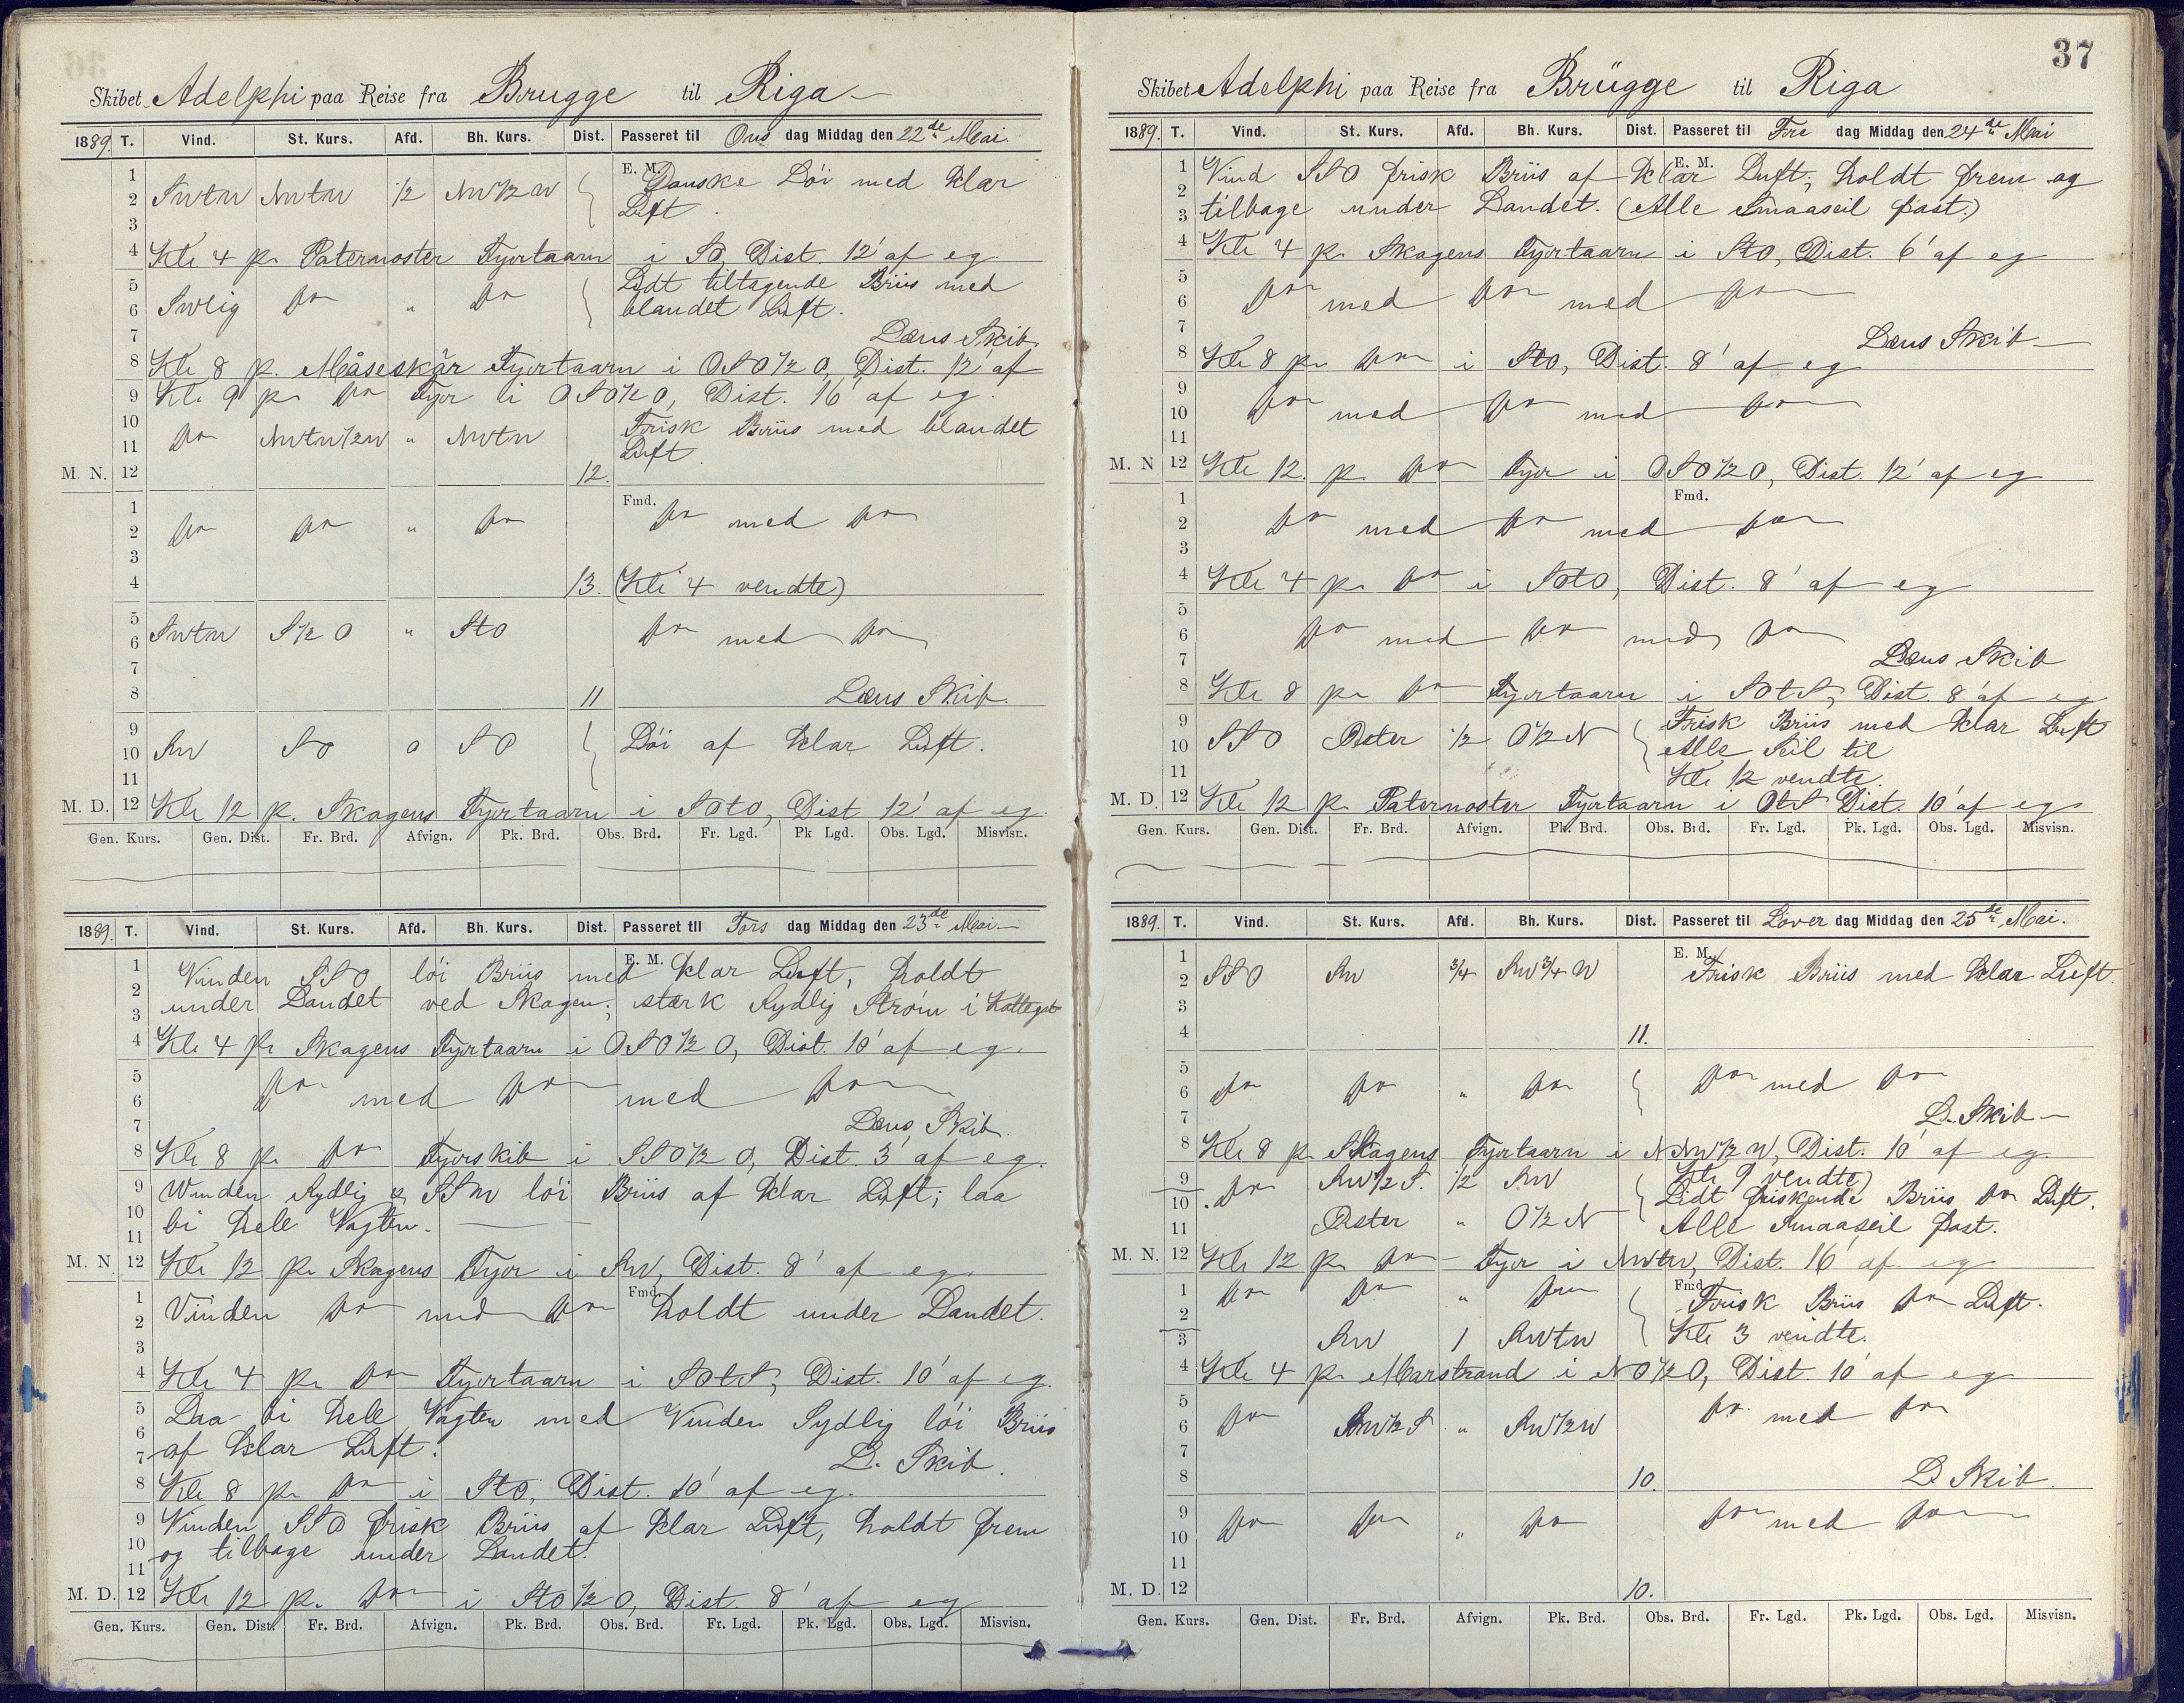 Skibet Adelphi paa Reise fra Brugge til Riga
1889. T. Vind. St. Kurs. Afd. Bh. Kurs. Dist. Passeret til Ons dag Middag den 22de Mai.
E. M.
1
2 SWtW NWtW 1/2 NW1/2W Ganske Löi med klar
3 Luft.
4 Kl. 4 p. Paternoster Fyrtaarn i SO, Dist. 12' af eg.
5 Lidt tiltagende Briis med
6 SWlig do „ do blandet Luft.
7 Læns Skib.
8 Kl. 8 p. Måseskär Fyrtaarn i OSO1/2O, Dist. 12' af
9 Kl. 9 p. do Fyr i OSO1/2O, Dist. 16' af eg.
10 Frisk Briis med blandet
11 do NWtW1/2W „ NWtW Luft.
M. N. 12 12.
Fmd.
1
2 do do „ do do med do
3
4 13. (Kl. 4 vendte)
5
6 SWtW S1/2O „ StO do med do
7
8 11 Læns Skib.
9
10 SW SO 0 SO Löi af klar Luft.
11
M. D. 12 Kl. 12 p. Skagens Fyrtaarn i SOtO, Dist 12' af eg.
Gen. Kurs. Gen. Dist. Fr. Brd. Afvign. Pk. Brd. Obs. Brd. Fr. Lgd. Pk Lgd. Obs. Lgd. Misvisn.
1889. T. Vind. St. Kurs. Afd. Bh. Kurs. Dist. Passeret til Tors dag Middag den 23de Mai
E. M.
1 Vinden SSO löi Briis med klar Luft, holdt
2
3 under Landet ved Skagen; stærk Sydlig Ström i Kattegat
4 Kl. 4 p. Skagens Fyrtaarn i OSO1/2O, Dist. 10' af eg.
5
6 do med do med do
7 Læns Skib.
8 Kl. 8 p. do Fyrskib i SSO1/2O, Dist. 3' af eg.
9 Vinden Sydlig & SSW löi Briis af klar Luft; laa
10
11 bi hele Vagten.
M. N. 12 Kl. 12 p. Skagens Fyr i SW, Dist. 8' af eg.
Fmd.
1
2 Vinden do med do holdt under Landet.
3
4 Kl. 4 p. do Fyrtaarn i SOtS, Dist. 10' af eg.
5 Laa bi hele Vagten med Vinden Sydlig löi Briis
6
7 af klar Luft. L. Skib.
8 Kl. 8 p. do i StO, Dist. 10' af eg.
9 Vinden SSO frisk Briis af klar Luft, holdt frem
10 og tilbage under Landet.
11
M. D. 12 Kl. 12 p. do i StO1/2O, Dist. 8' af eg
Gen. Kurs. Gen. Dist. Fr. Brd. Afvign. Pk. Brd. Obs. Brd. Fr. Lgd. Pk. Lgd. Obs. Lgd. Misvisn.
37
Skibet Adelphi paa Reise fra Brügge til Riga
1889. T. Vind. St. Kurs. Afd. Bh. Kurs. Dist. Passeret til Fre dag Middag den 24de Mai
E. M.
1 Vind SSO frisk Briis af klar Luft; holdt frem og
2
3 tilbage under Landet. (Alle Smaaseil fast.)
4 Kl. 4 p. Skagens Fyrtaarn i StO, Dist. 6' af eg
5
6 do med do med do
7 Læns Skib
8 Kl. 8 p. do i StO, Dist. 8' af eg
9
10 do med do med do
11
M. N 12 Kl. 12. p. do Fyr i OSO1/2O, Dist. 12' af eg
Fmd.
1
2 do med do med do
3
4 Kl. 4 p. do i SOtO, Dist. 8' af eg
5
6 do med do med do
7 Læns Skib
8 Kl. 8 p. do Fyrtaarn i SOtS, Dist. 8' af eg
9 Frisk Briis med klar Luft
10 SSO Oster 1/2 O1/2N Alle Seil til
11 Kl. 12 vendte.
M. D. 12 Kl. 12 p. Paternoster Fyrtaarn i OtS Dist. 10' af eg.
Gen. Kurs. Gen. Dist. Fr. Brd. Afvign. Pk. Brd. Obs. Brd. Fr. Lgd. Pk. Lgd. Obs. Lgd. Misvisn.
1889. T. Vind. St. Kurs. Afd. Bh. Kurs. Dist. Passeret til Löver dag Middag den 25de Mai.
E. M.
1
2 SSO SW 3/4 SW3/4W Frisk Briis med klar Luft.
3
4 11.
5
6 do do „ do do med do
7 L. Skib
8 Kl. 8 p. Skagens Fyrtaarn i NNW1/2W, Dist. 10' af eg.
9 SW1/2S. 1/2 SW Kl. 9 vendte)
10 do Lidt friskende Briis do Luft.
11 Oster „ O1/2N Alle Smaaseil fast.
M. N. 12 Kl. 12 p. do Fyr i NWtW, Dist. 16' af eg
Fmd.
1 do do „ do Frisk Briis do Luft.
2
3 SW 1 SWtW Kl. 3 vendte.
4 Kl. 4 p. Marstrand i NO1/2O, Dist. 10' af eg
5
6 do SW1/2S „ SW1/2W do med do
7
8 10. L Skib.
9
10 do do „ do do med do
11
M. D. 12 10.
Gen. Kurs. Gen. Dist. Fr. Brd. Afvign. Pk. Brd. Obs. Brd. Fr. Lgd. Pk. Lgd. Obs. Lgd. Misvisn.